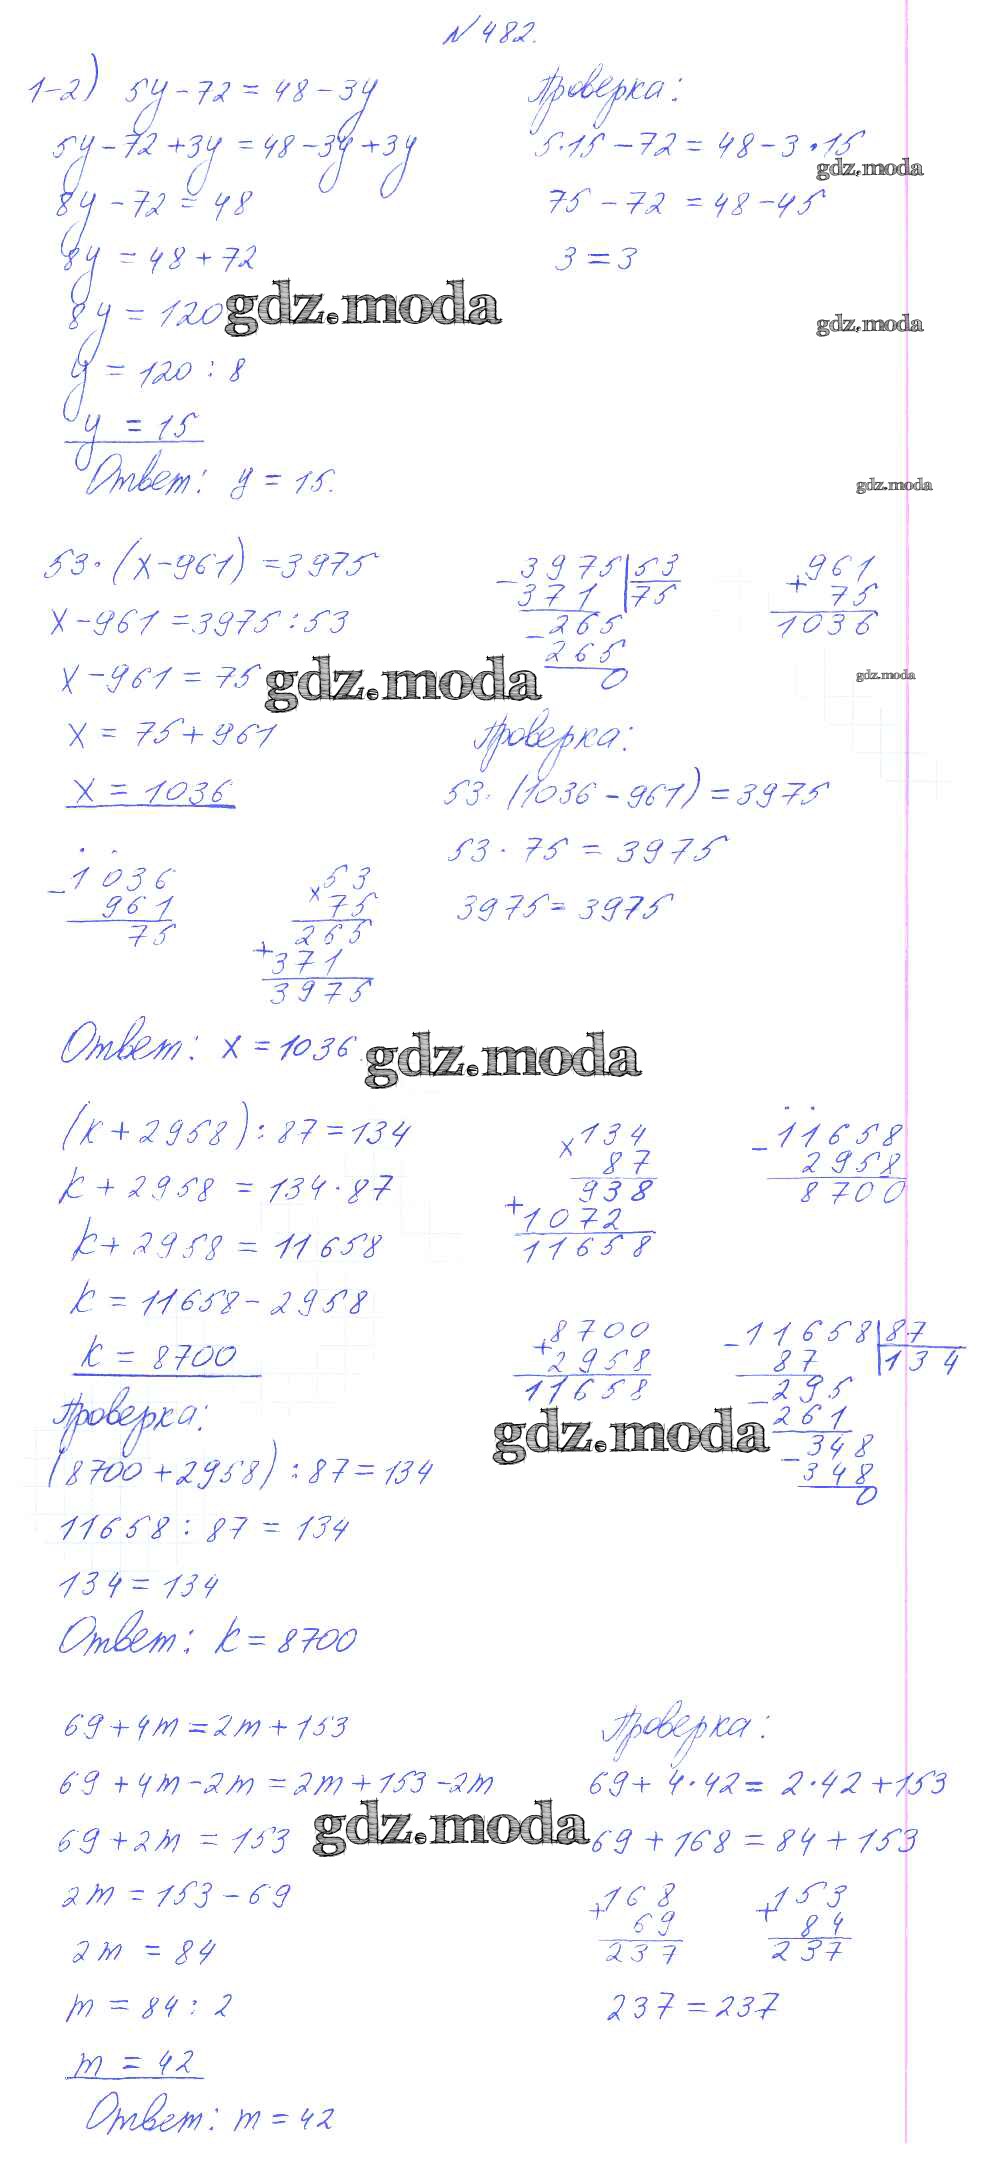 № 482.
1-2) 5y - 72 = 48 - 3y
5y - 72 + 3y = 48 - 3y + 3y
8y - 72 = 48
8y = 48 + 72
8y = 120
y = 120 : 8
y = 15
Ответ: y = 15.
Проверка:
5·15 - 72 = 48 - 3·15
75 - 72 = 48 - 45
3 = 3
gdz.moda
gdz.moda
gdz.moda
gdz.moda
53·(x - 961) = 3975
x - 961 = 3975 : 53
x - 961 = 75
x = 75 + 961
x = 1036
gdz.moda
- 3975 | 53
371 | 75
- 265
265
0
961
+ 75
1036
gdz.moda
Проверка:
53·(1036 - 961) = 3975
53·75 = 3975
3975 = 3975
- 1036
961
75
× 53
75
265
+ 371
3975
Ответ: x = 1036.
gdz.moda
(k + 2958) : 87 = 134
k + 2958 = 134·87
k + 2958 = 11658
k = 11658 - 2958
k = 8700
× 134
87
938
+ 1072
11658
- 11658
2958
8700
+ 8700
2958
11658
- 11658 | 87
87 | 134
- 295
261
- 348
348
0
gdz.moda
Проверка:
(8700 + 2958) : 87 = 134
11658 : 87 = 134
134 = 134
Ответ: k = 8700
69 + 4m = 2m + 153
69 + 4m - 2m = 2m + 153 - 2m
69 + 2m = 153
2m = 153 - 69
2m = 84
m = 84 : 2
m = 42
Ответ: m = 42
gdz.moda
Проверка:
69 + 4·42 = 2·42 + 153
69 + 168 = 84 + 153
+ 168
69
237
+ 153
84
237
237 = 237